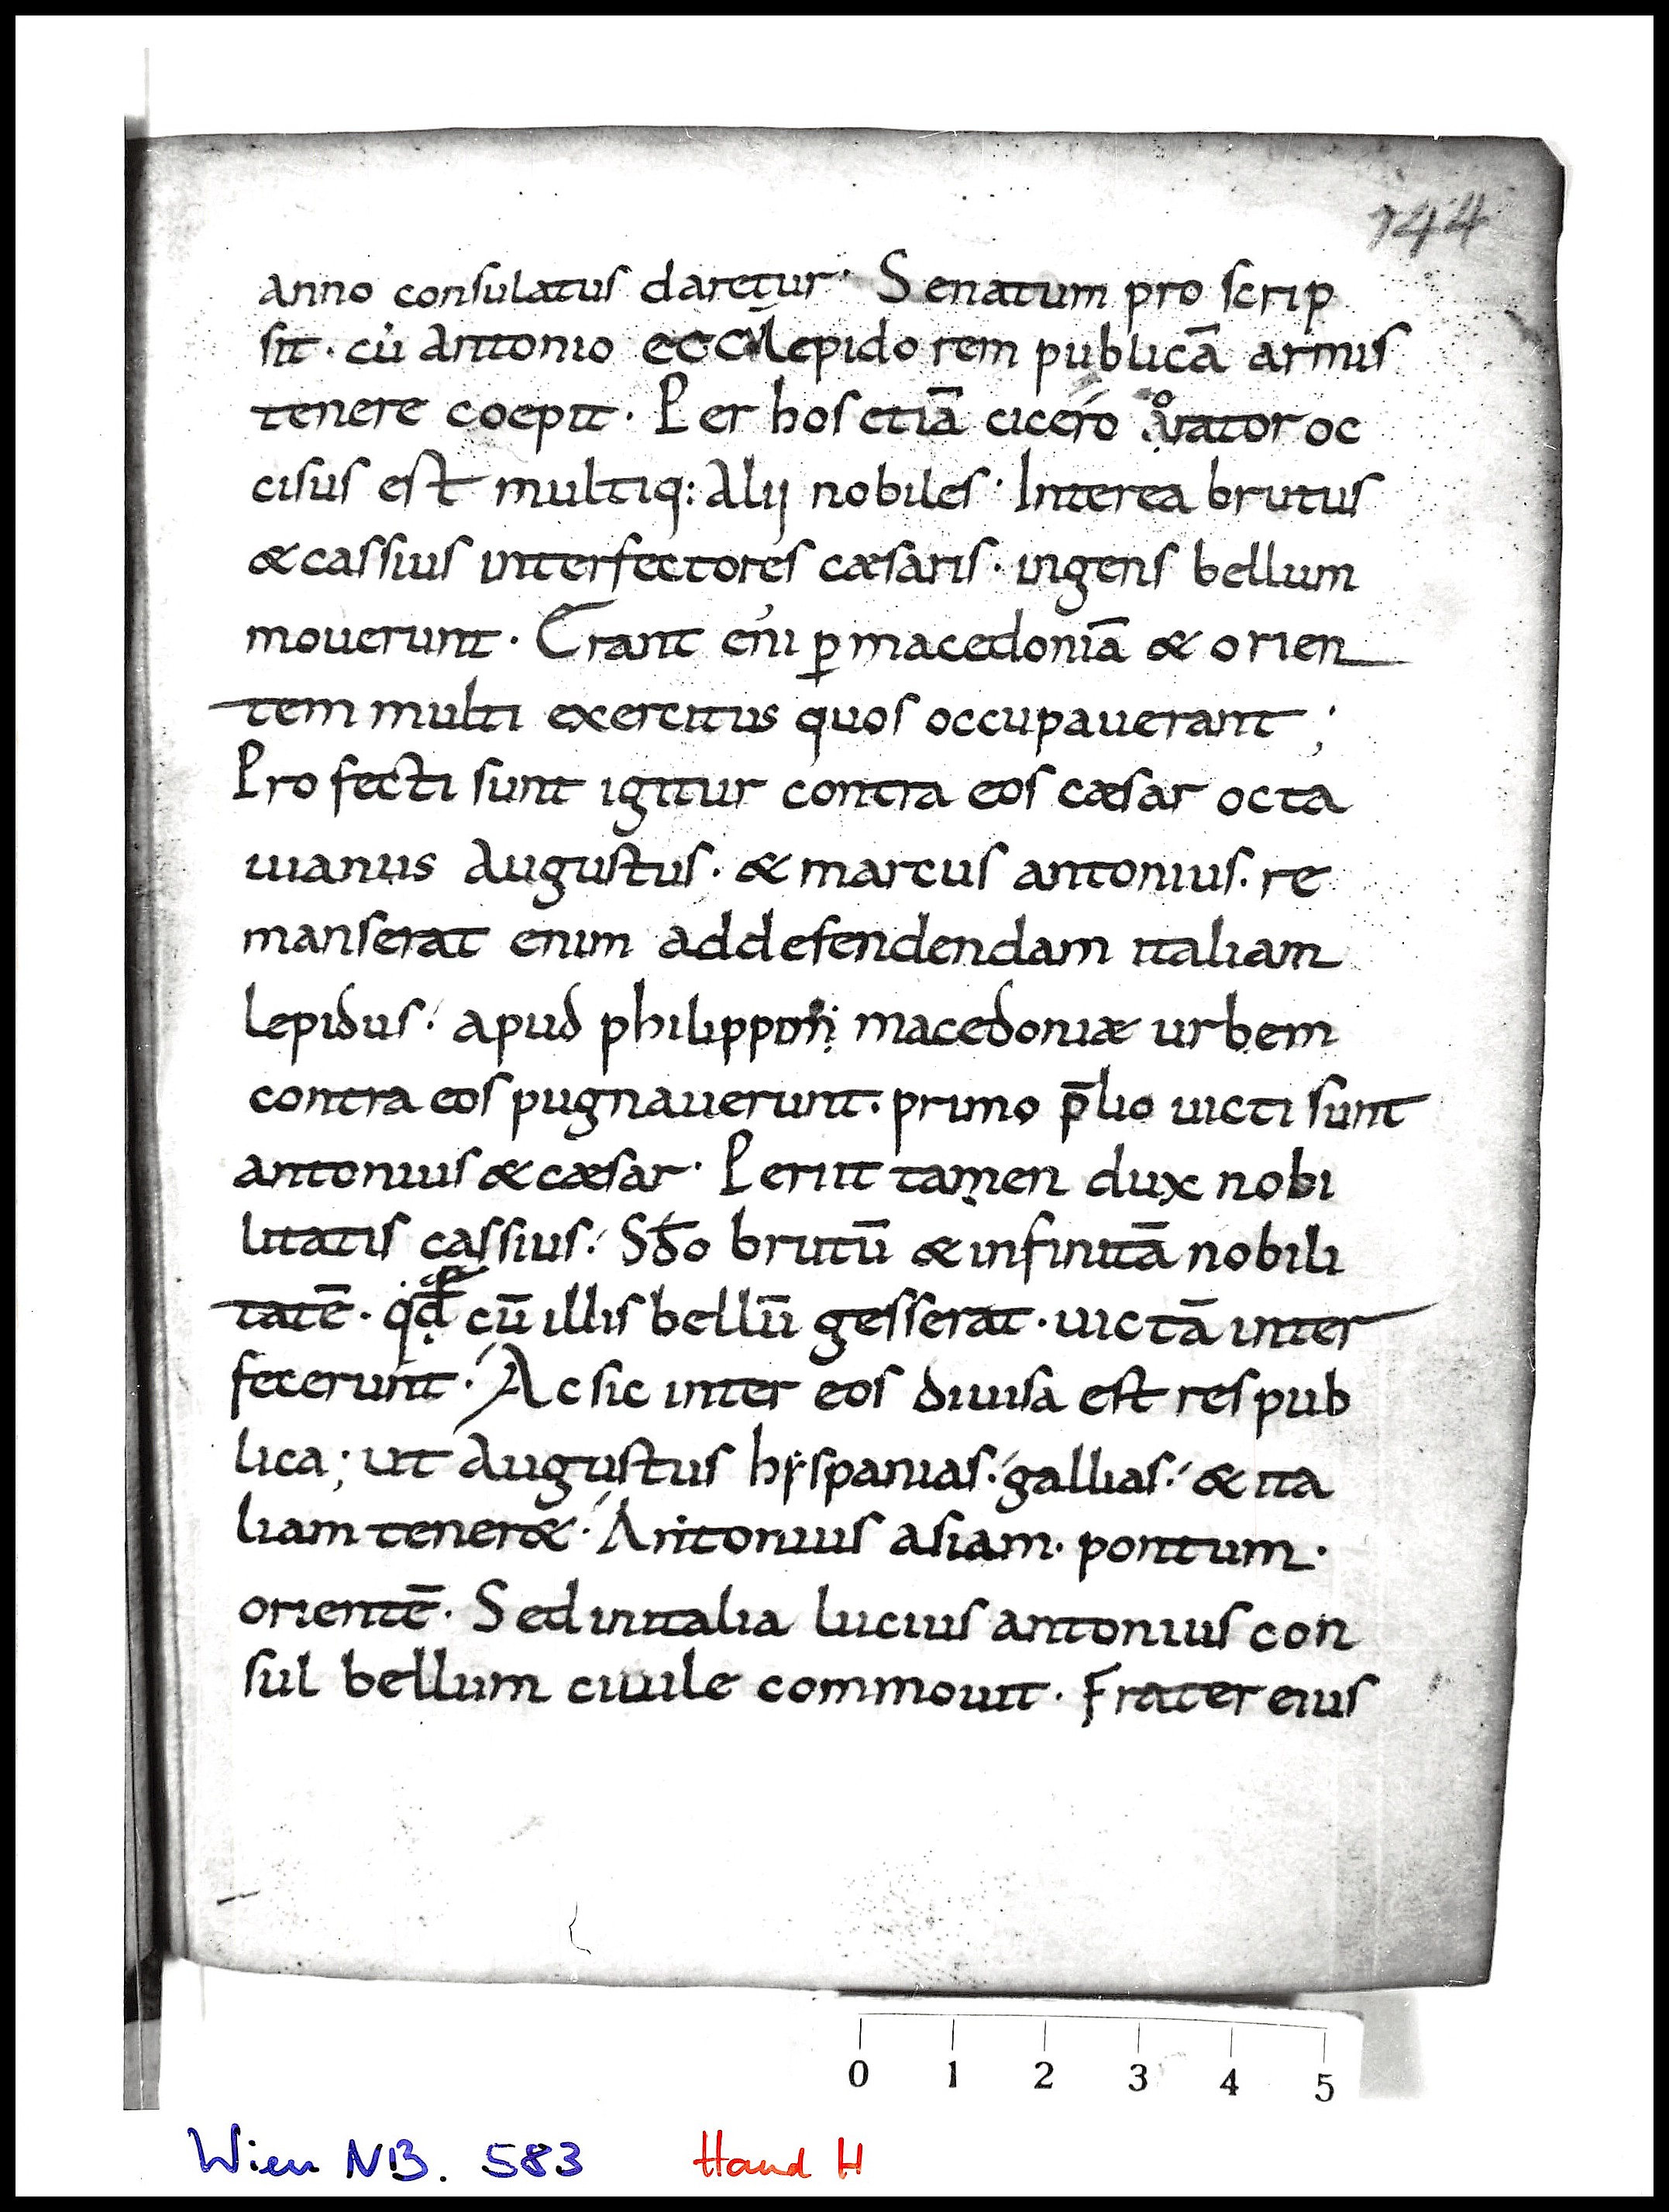 144
anno consulatus daretur· Senatum pro scrip
sit· cū antonio ec cū lepido rem publicā armis
tenere coepit· Per hos etiā cicero orator oc
cisus est multiq: alij nobiles· Interea brutus
& cassius interfectores cæsaris· ingens bellum
mouerunt· Erant eni ꝑ macedoniā & orien
tem multi exercitus quos occupauerant;
Pro fecti sunt igitur contra eos cæsar octa
uianus augustus· & marcus antonius· re
manserat enim ad defendendam italiam
lepidus· apud philippi macedoniæ urbem
contra eos pugnauerunt· primo p̄lio uicti sunt
antonius & cæsar· Periit tamen dux nobi
litatis cassius· Sđo brutū & infinitā nobili
tatē· qđ cū illis bellū gesserat· uictā inter
fecerunt· Ac sic inter eos diuisa est res pub
lica; ut augustus hyspanias· gallias· & ita
liam tener&· Antonius asiam· pontum·
orientē· Sed in italia lucius antonius con
sul bellum ciuile commouit· Frater eius
0 1 2 3 4 5
Wien NB. 583 Hand H